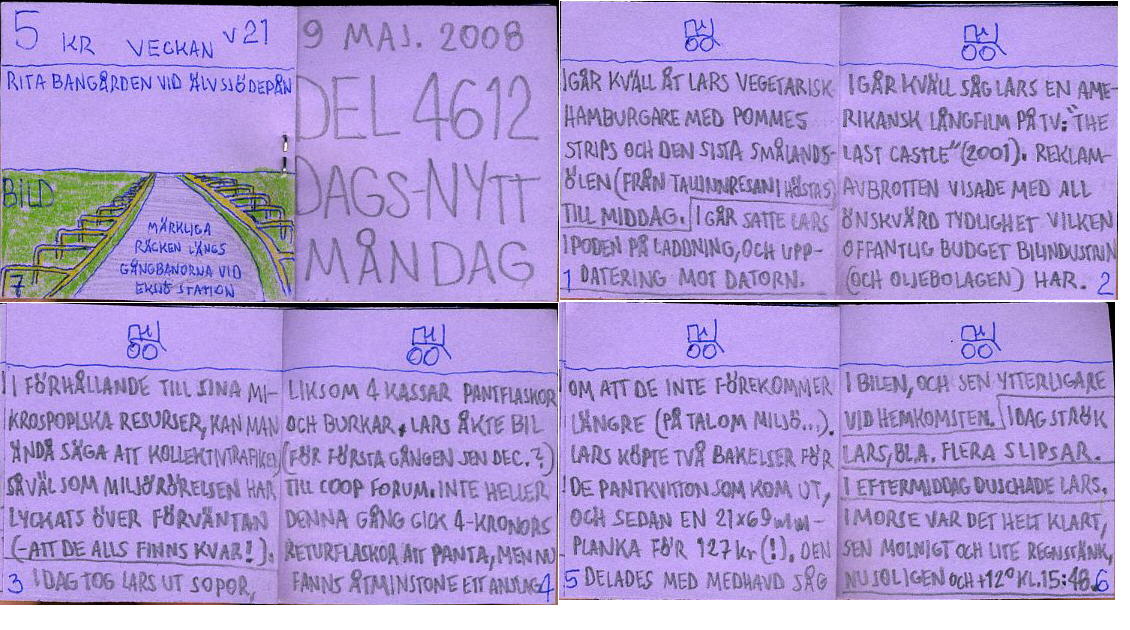 5 KR VECKAN V21
RITA BANGÅRDEN VID ÄLVSJÖDEPÅN
BILD
MÄRKLIGA
RÄCKEN LÄNGS
GÅNGBANORNA VID
EKSJÖ STATION
7
9 MAJ. 2008
DEL 4612
DAGS-NYTT
MÅNDAG
IGÅR KVÄLL ÅT LARS VEGETARISK
HAMBURGARE MED POMMES
STRIPS OCH DEN SISTA SMÅLANDS-
ÖLEN (FRÅN TALLINNRESAN I HÖSTAS)
TILL MIDDAG. IGÅR SATTE LARS
IPODEN PÅ LADDNING, OCH UPP-
1 DATERING MOT DATORN.
IGÅR KVÄLL SÅG LARS EN AME-
RIKANSK LÅNGFILM PÅ TV: "THE
LAST CASTLE" (2001). REKLAM-
AVBROTTEN VISADE MED ALL
ÖNSKVÄRD TYDLIGHET VILKEN
OFFANTLIG BUDGET BILINDUSTRIN
(OCH OLJEBOLAGEN) HAR. 2
I FÖRHÅLLANDE TILL SINA MI-
KROSPOPISKA RESURSER, KAN MAN
ÄNDÅ SÄGA ATT KOLLEKTIVTRAFIKEN
SÅVÄL SOM MILJÖRÖRELSEN HAR
LYCKATS ÖVER FÖRVÄNTAN
(-ATT DE ALLS FINNS KVAR!).
3 IDAG TOG LARS UT SOPOR,
LIKSOM 4 KASSAR PANTFLASKOR
OCH BURKAR. LARS ÅKTE BIL
(FÖR FÖRSTA GÅNGEN SEN DEC.?)
TILL COOP FORUM. INTE HELLER
DENNA GÅNG GICK 4-KRONORS
RETURFLASKOR ATT PANTA, MEN NU
FANNS ÅTMINSTONE ETT ANSLAG 4
OM ATT DE INTE FÖREKOMMER
LÄNGRE (PÅ TAL OM MILJÖ...).
LARS KÖPTE TVÅ BAKELSER FÖR
DE PANTKVITTON SOM KOM UT,
OCH SEDAN EN 21x69mm-
PLANKA FÖR 127kr (!). DEN
5 DELADES MED MEDHAVD SÅG
I BILEN, OCH SEN YTTERLIGARE
VID HEMKOMSTEN. IDAG STRÖK
LARS, BL.A. FLERA SLIPSAR.
I EFTERMIDDAG DUSCHADE LARS.
I MORSE VAR DET HELT KLART,
SEN MOLNIGT OCH LITE REGNSTÄNK,
NU SOLIGEN OCH +12° KL. 15:48. 6